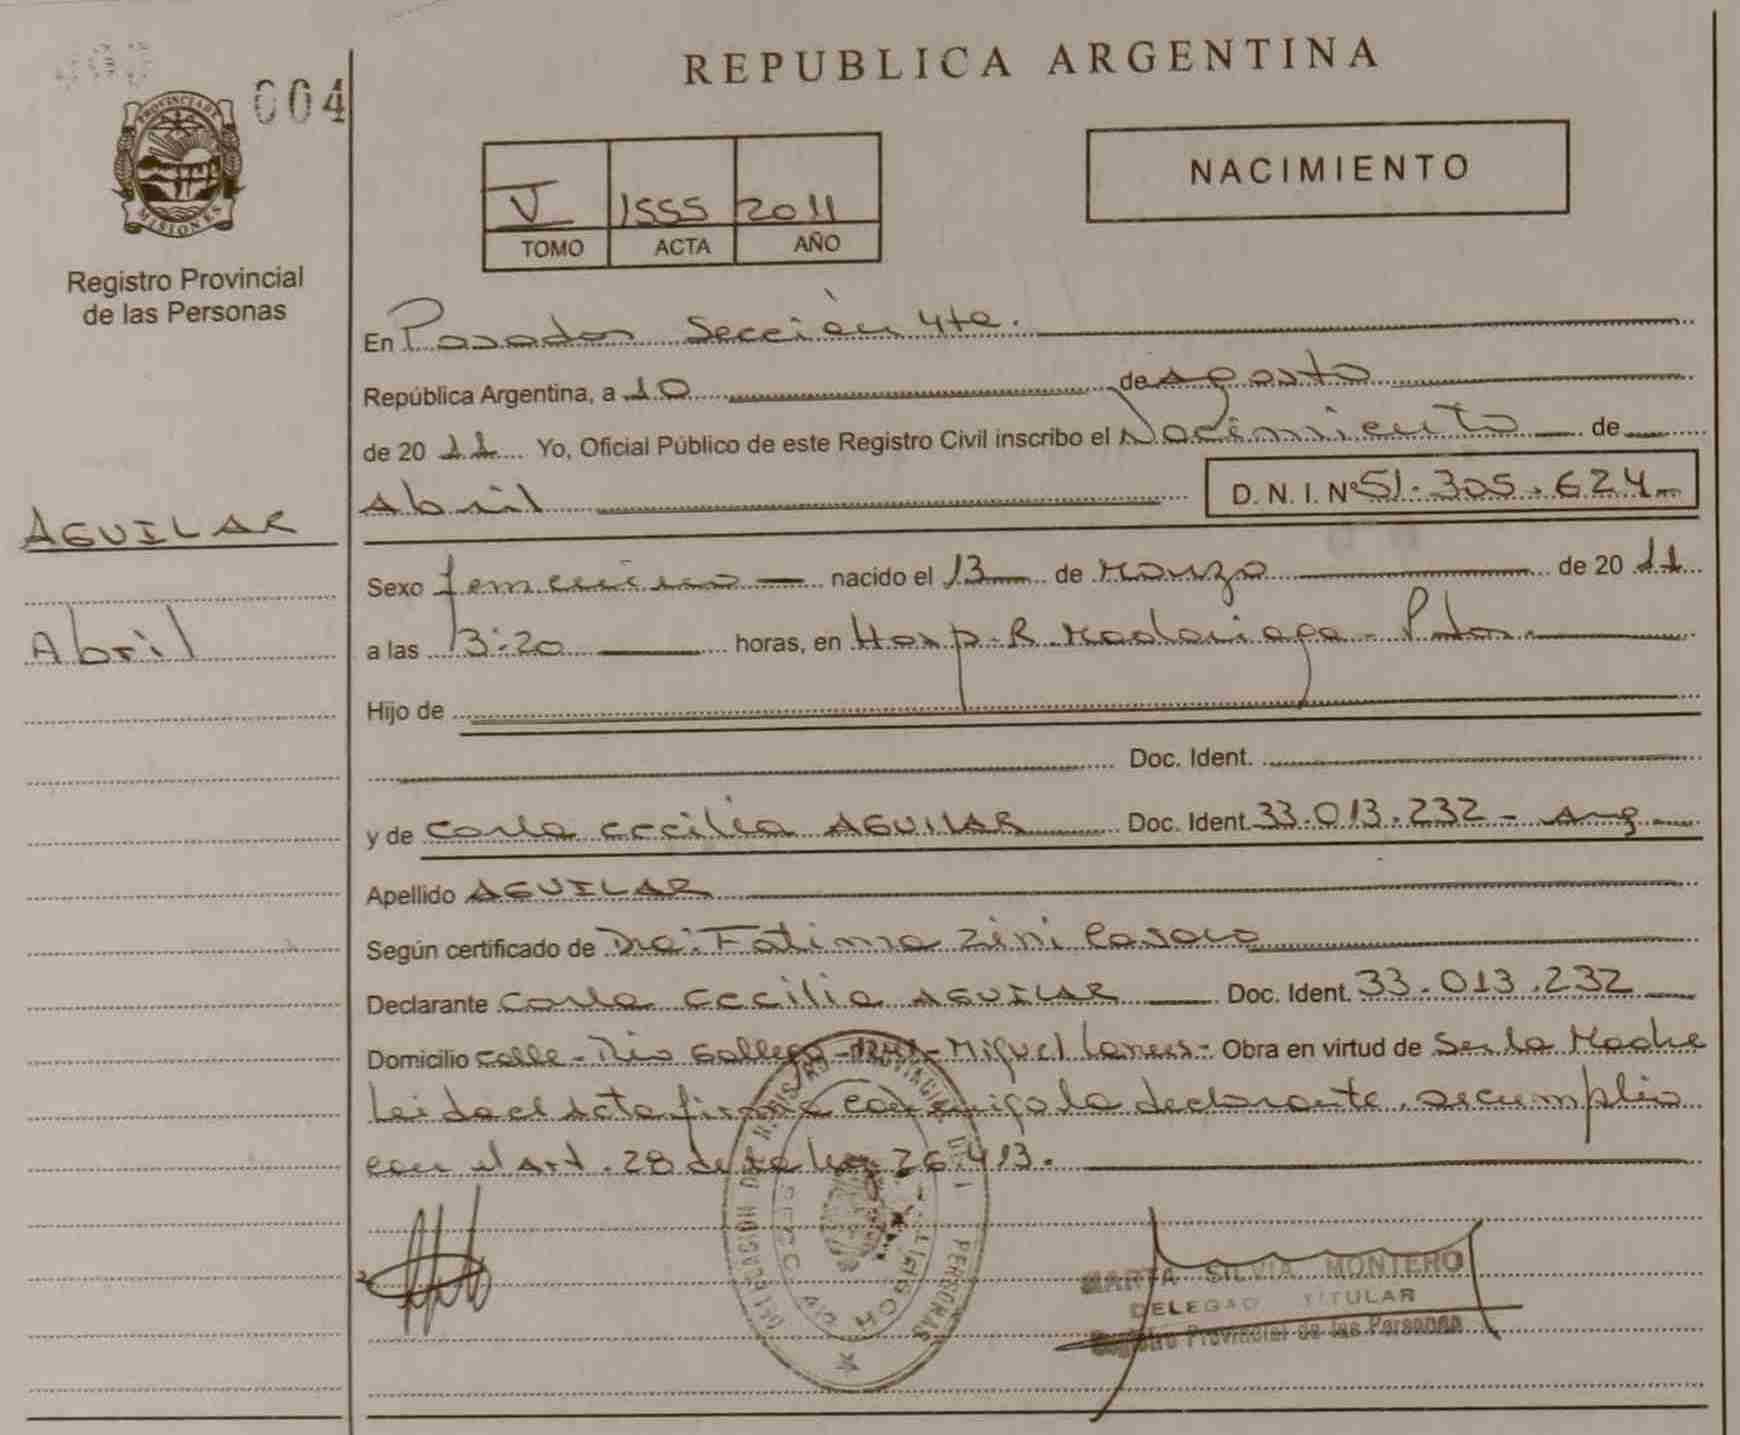 REPUBLICA ARGENTINA
004
PROVINCIA DE
MISIONES
Registro Provincial
de las Personas
V 1555 2011
TOMO ACTA AÑO
NACIMIENTO
AGUILAR
Abril
En Posadas Sección 4ta.
República Argentina, a 10 de Agosto
de 2011 Yo, Oficial Público de este Registro Civil inscribo el Nacimiento de
Abril D. N. I. Nº 51.305.624
Sexo femenino nacido el 13 de Marzo de 2011
a las 13:20 horas, en Hosp. R. Madariaga - Pdas.
Hijo de
Doc. Ident.
y de Carla Cecilia AGUILAR Doc. Ident. 33.013.232 - Arg
Apellido AGUILAR
Según certificado de Dra. Fatima Zini
Declarante Carla Cecilia AGUILAR Doc. Ident. 33.013.232
Domicilio calle - Rio Gallego - Miguel Lanus - Obra en virtud de Ser la Madre
Leida el Acta firma conmigo la declarante. se cumplio
con el Art. 28 de la ley 26.413.
MARTA SILVIA MONTERO
DELEGAD TITULAR
Registro Provincial de las Personas